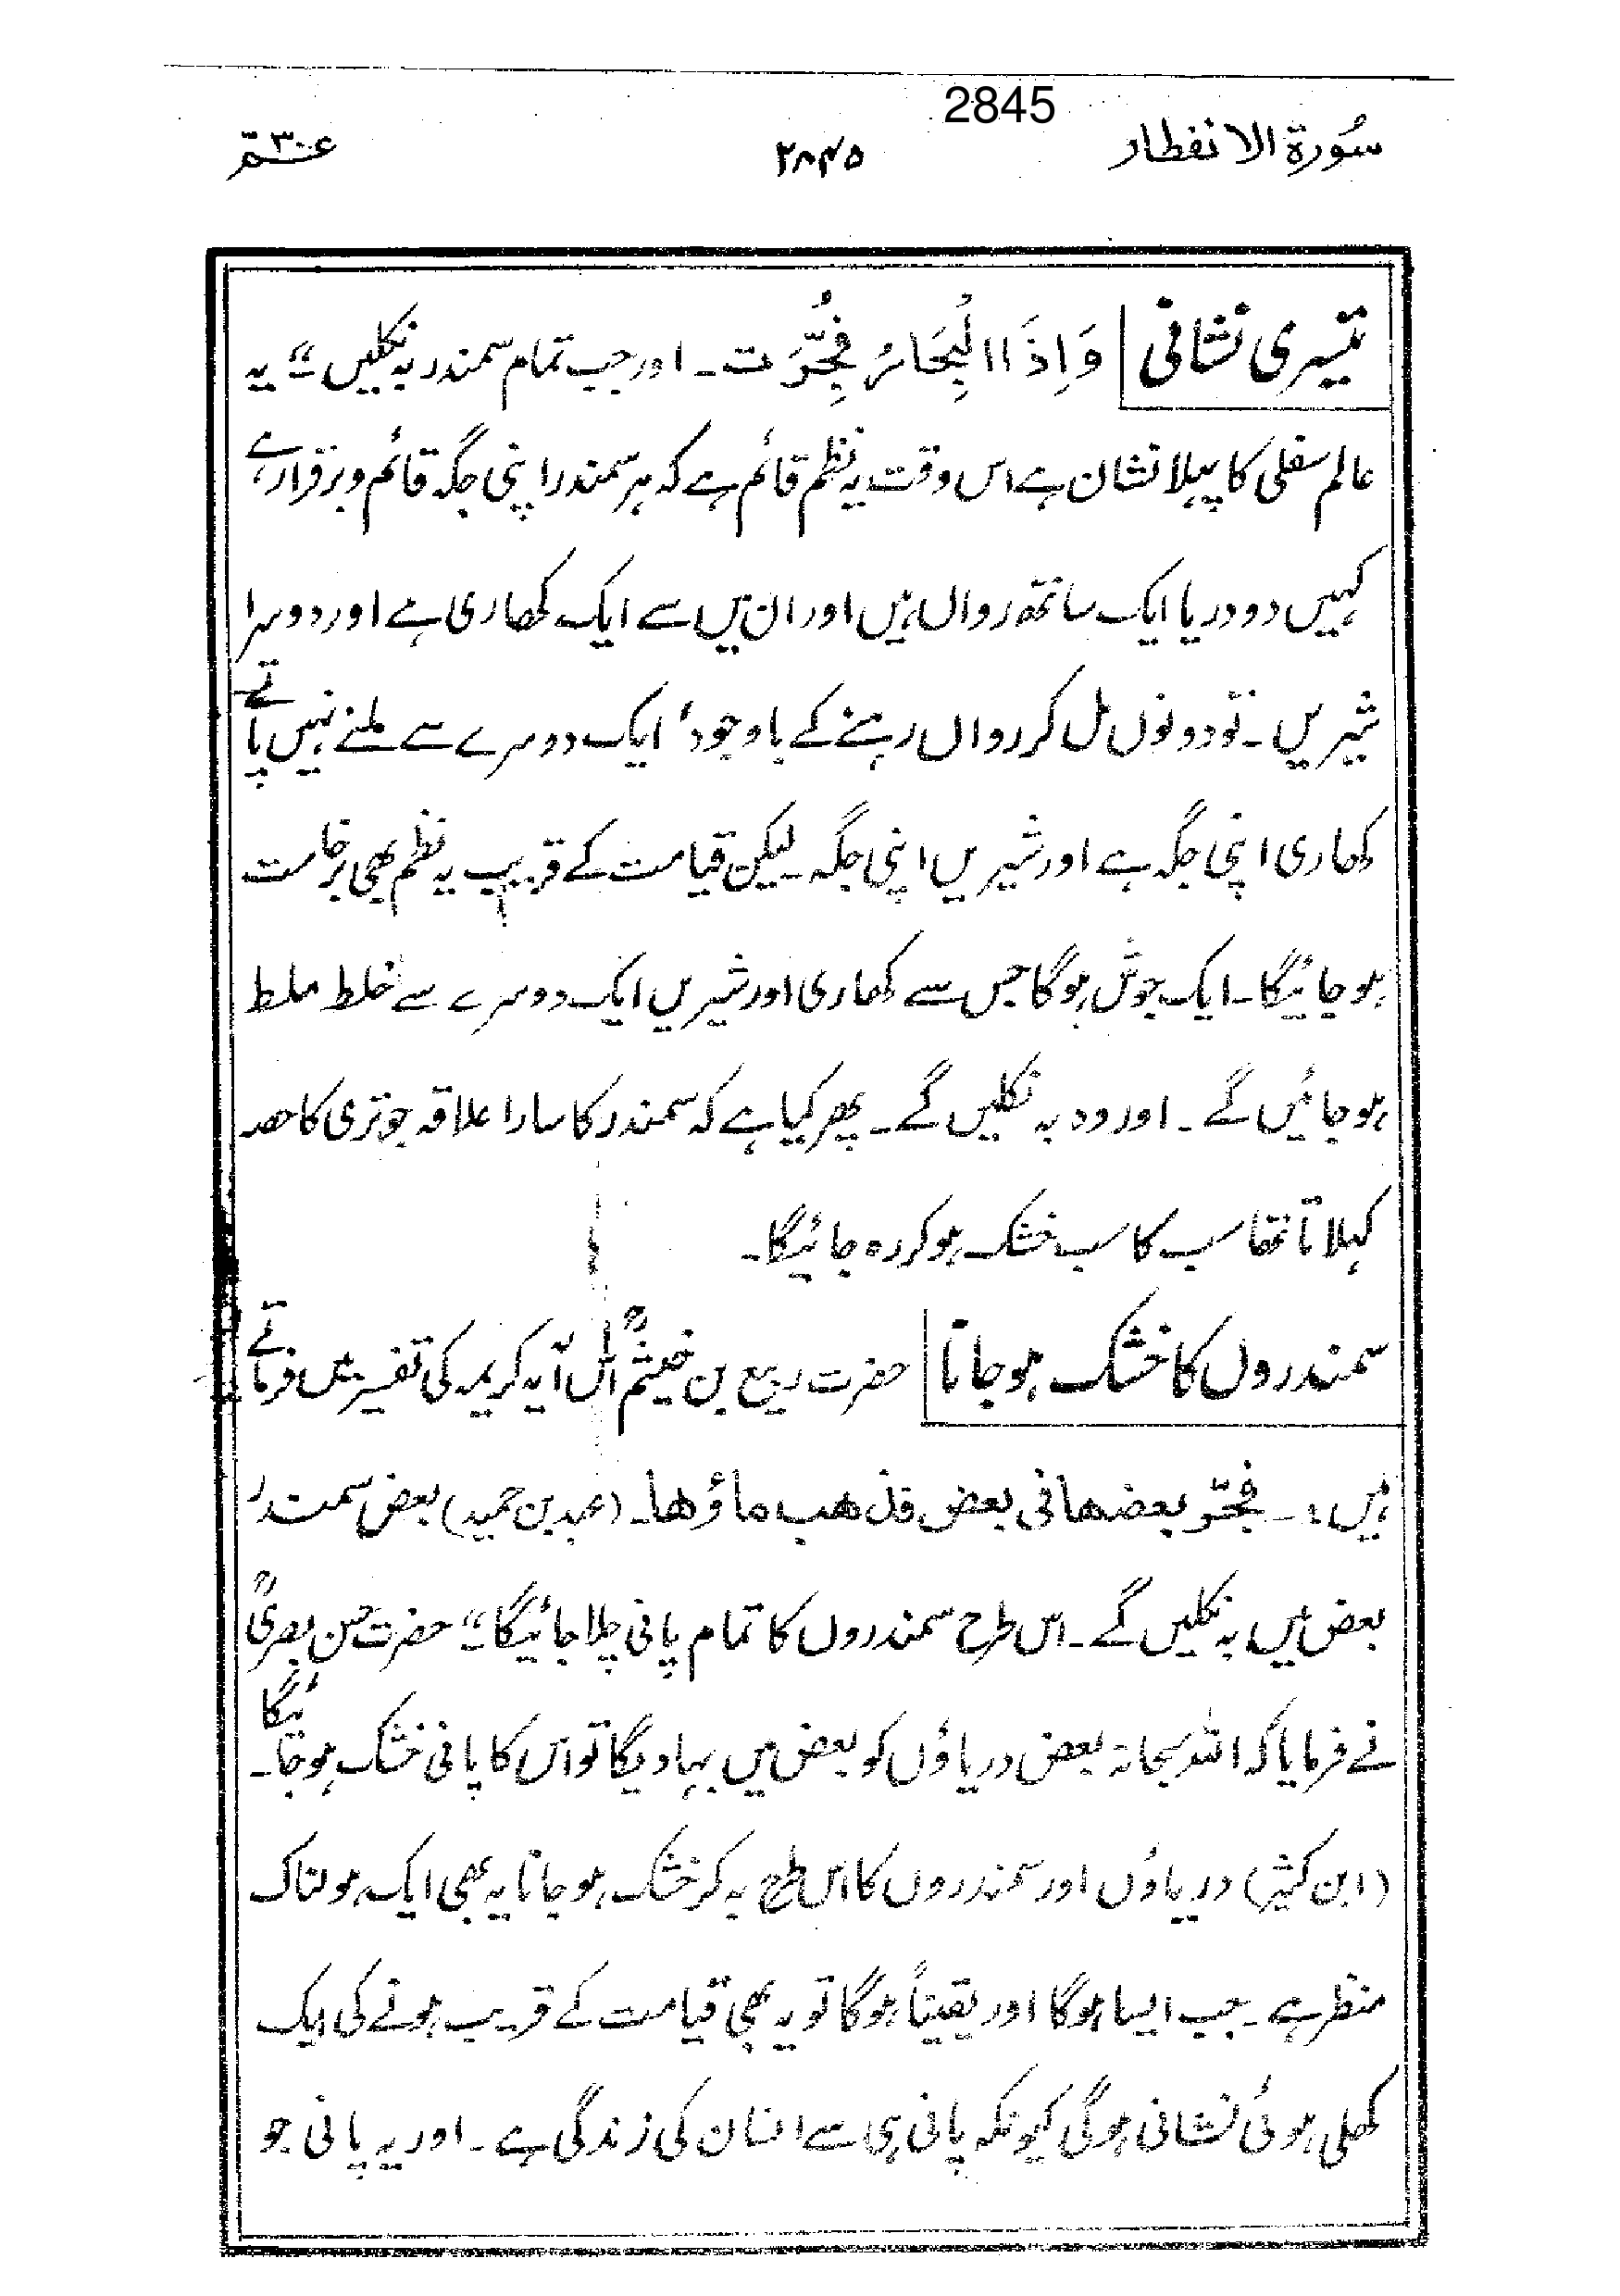 2845
سُورۃ الانفطار ۲۸۴۵ عمّ ۳۰
تیسری نشانی وَاِذَا الْبِحَارُ فُجِّرَت۔ اور جب تمام سمندر بہ نکلیں“ یہ
عالم سفلی کا پہلا نشان ہے اس وقت یہ نظم قائم ہے کہ ہر سمندر اپنی جگہ قائم و برقرار ہے،
کہیں دو دریا ایک ساتھ رواں ہیں اور ان میں سے ایک کھاری ہے اور دوسرا
شیریں۔ تو دونوں مل کر رواں رہنے کے باوجود، ایک دوسرے سے ملنے نہیں پاتے
کھاری اپنی جگہ ہے اور شیریں اپنی جگہ۔ لیکن قیامت کے قریب یہ نظم بھی برخاست
ہو جائیگا۔ ایک جوش ہوگا جس سے کھاری اور شیریں ایک دوسرے سے خلط ملط
ہو جائیں گے۔ اور وہ بہ نکلیں گے۔ پھر کیا ہے کہ سمندر کا سارا علاقہ جو تری کا حصہ
کہلاتا تھا سب کا سب خشک ہو کر رہ جائیگا۔
سمندروں کا خشک ہو جانا حضرت ربیع بن خیثمؒ اس آیہ کریمہ کی تفسیر میں فرماتے
ہیں:۔ فجّر بعضها فی بعض فذهب ماؤها۔ (عبد بن حمید) بعض سمندر
بعض میں بہ نکلیں گے۔ اس طرح سمندروں کا تمام پانی چلا جائیگا“ حضرت حسن بصریؒ
نے فرمایا کہ اللہ سبحانہ بعض دریاؤں کو بعض میں بہا دیگا تو اس کا پانی خشک ہو جائیگا۔
(ابن کثیر) دریاؤں اور سمندروں کا اس طرح بہ کر خشک ہو جانا یہ بھی ایک ہولناک
منظر ہے۔ جب ایسا ہوگا اور یقیناً ہوگا تو یہ بھی قیامت کے قریب ہونے کی ایک
کھلی ہوئی نشانی ہوگی کیونکہ پانی ہی سے انسان کی زندگی ہے۔ اور یہ پانی جو